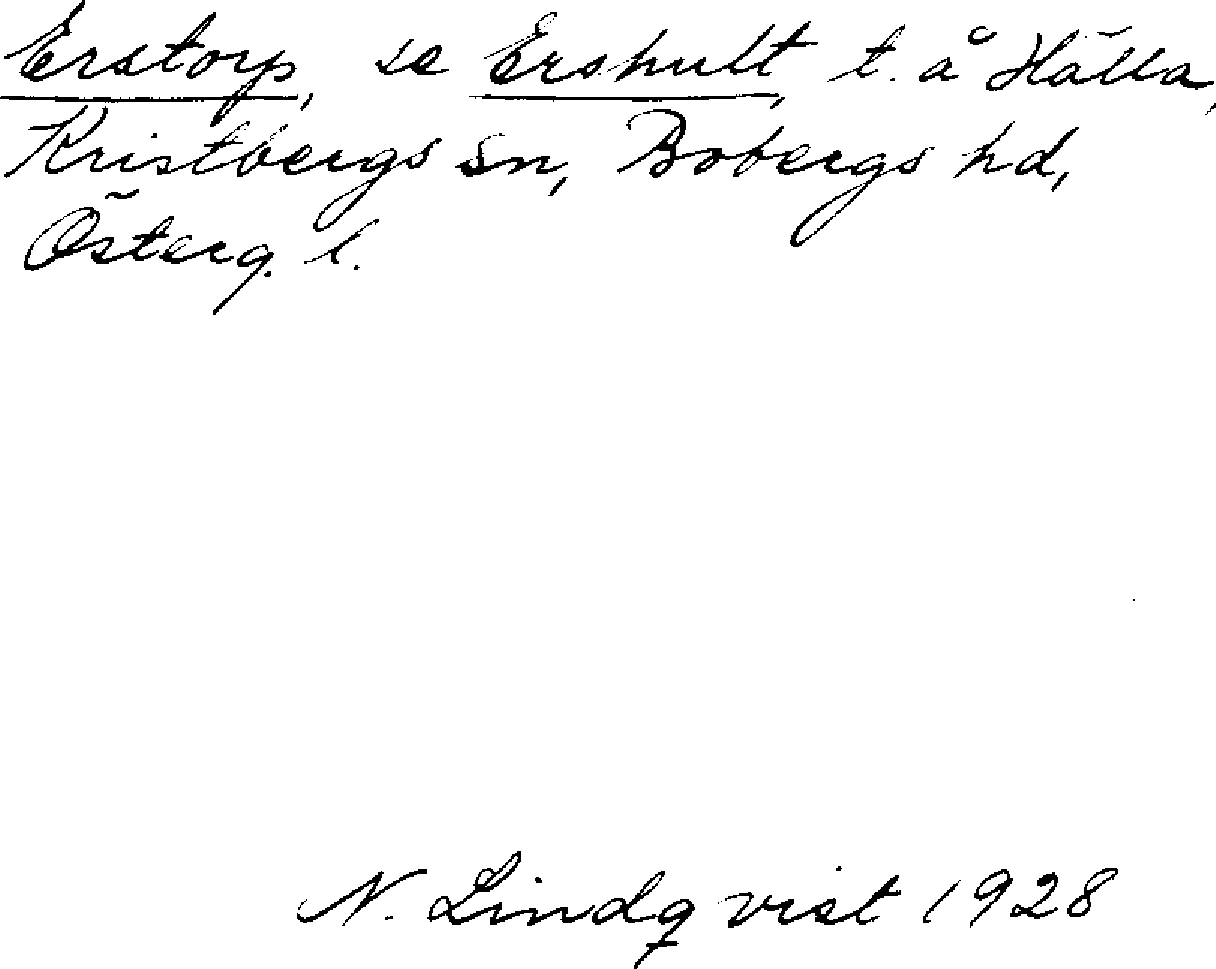 Erstorp, se Ershult t. å Hälla,
Kristbergs sn, Bobergs hd,
Österg. l.
N. Lindqvist 1928